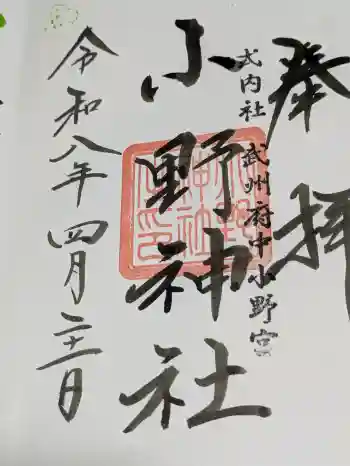 奉拝
式内社 武州府中小野宮
小野神社
令和八年四月二十一日